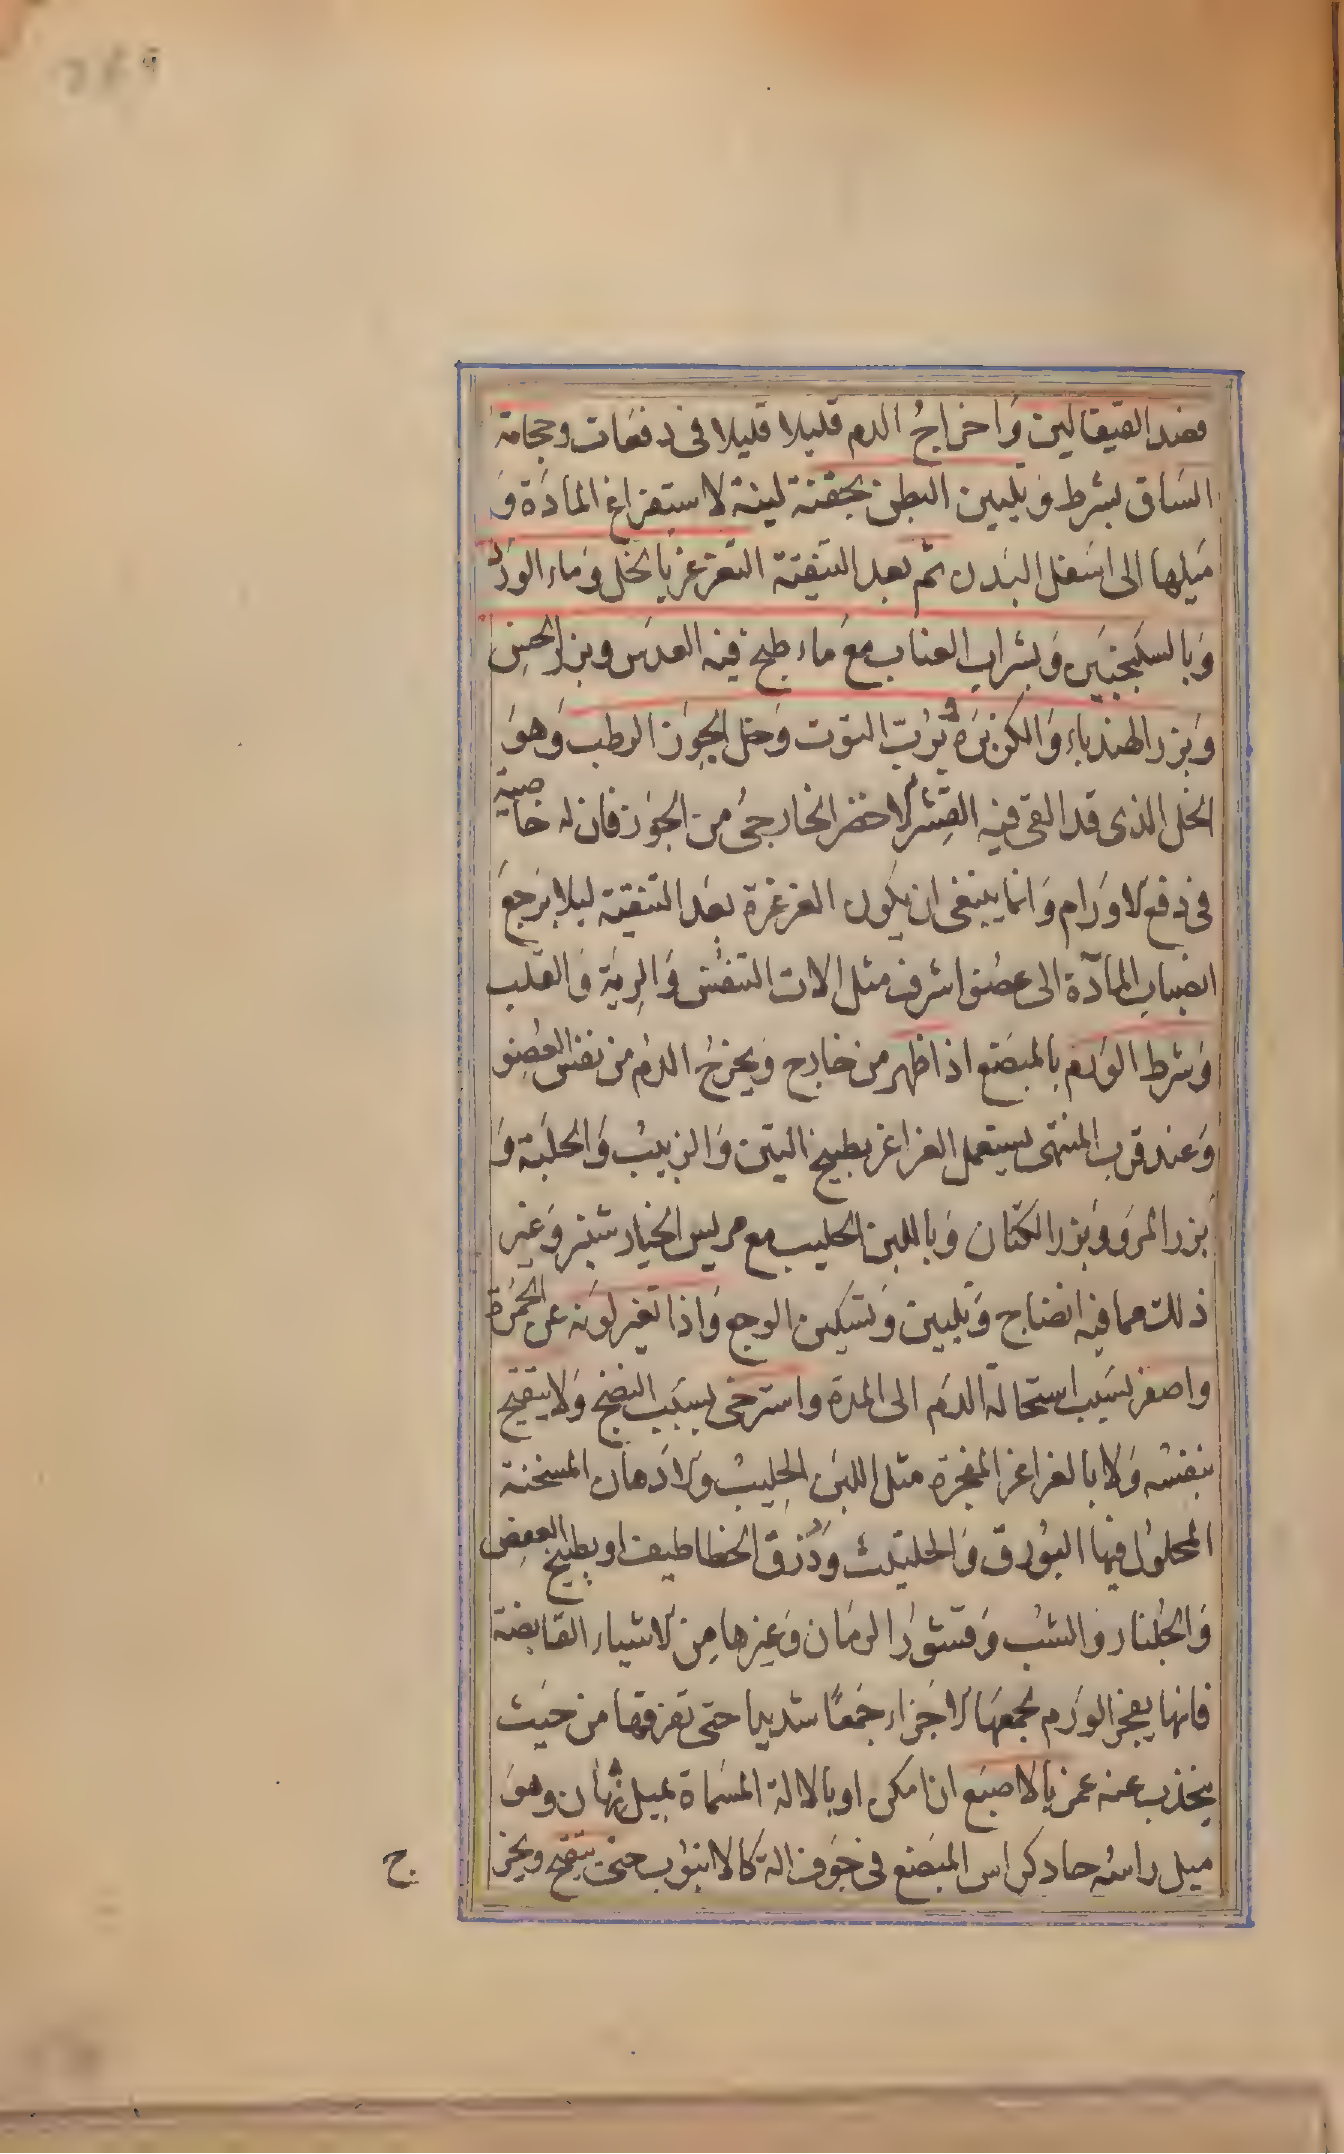 فصد القيفالين وَاخراجُ الدم قليلا قليلا فى دفعَات وحجامة
السَاق بشرط وَتليين البطن بحقنة لينة لاستفراغ المادَة وَ
مَيلها الى اسَفل البَدن ثم بعد التنقية التغرغر بالخل وَماء الورد
وَبالسكنجبَين وَبشراب العناب معَ ماء طبخ فيه العدسَ وبزر الخس
وَبزر الهندباء وَالكزبَرة وَبرُبّ التوت وَخل الجوز الرطب وَهوَ
الخل الذى قد القى فيه القِشر الاخضر الخارجىُ من الجوَز فان له خاصية
فى دفع الاورَام وَانما ينبغى ان يكون الغرغرة بعَد التنقية ليلا يرَجعَ
انصباب المآدّة الى عضو اشرف مثل الات التنفسُ وَالرِية وَالقلب
وَشرط الوَرم بالمبضَع اذا ظهر من خارج وَيخرجُ الدمُ من نفس العضِو
وَعند قرب المنتهى يستعمل الغراغر بطبيخ التين وَالزبيبُ وَالحلبَة وَ
بزر المرَو وَبزر الكتان وَباللبن الحليب مع مريس الخيار شنبر وَغير
ذلك مما فيه انضاج وَتليين وَتسكين الوجع وَاذا تغير لوَنه عن الحمُرة
واصفر بسَبب استحالة الدَم الى المدة واسترخى بسبَب النضج وَلا ينقتح
بنفسُه وَلا بالغراغر المفجرة مثل اللبَن الحِليبُ وَالادَهان المسخنة
المحلوُل فيها البوُرق وَالحليتث وَذُرق الخطاطيف او بطبيخ العفص
وَالجُلنار وَالشبُ وَقشوُر الرمَان وَغيرها مِن الاشياء القابضة
فانها يفجر الورَم بجمعهَا الاجَزاء جَمعًا شديدا حتى تفرقها من حيَث
ينجذب عنه غمز بالاصبَع ان امكن او بالالة المسَماة بميل نهان وهوَ
ميل راسُه حاد كراس المبضَع فى جوَف الة كالانبوُب حتى ينقتح ويخر
ج